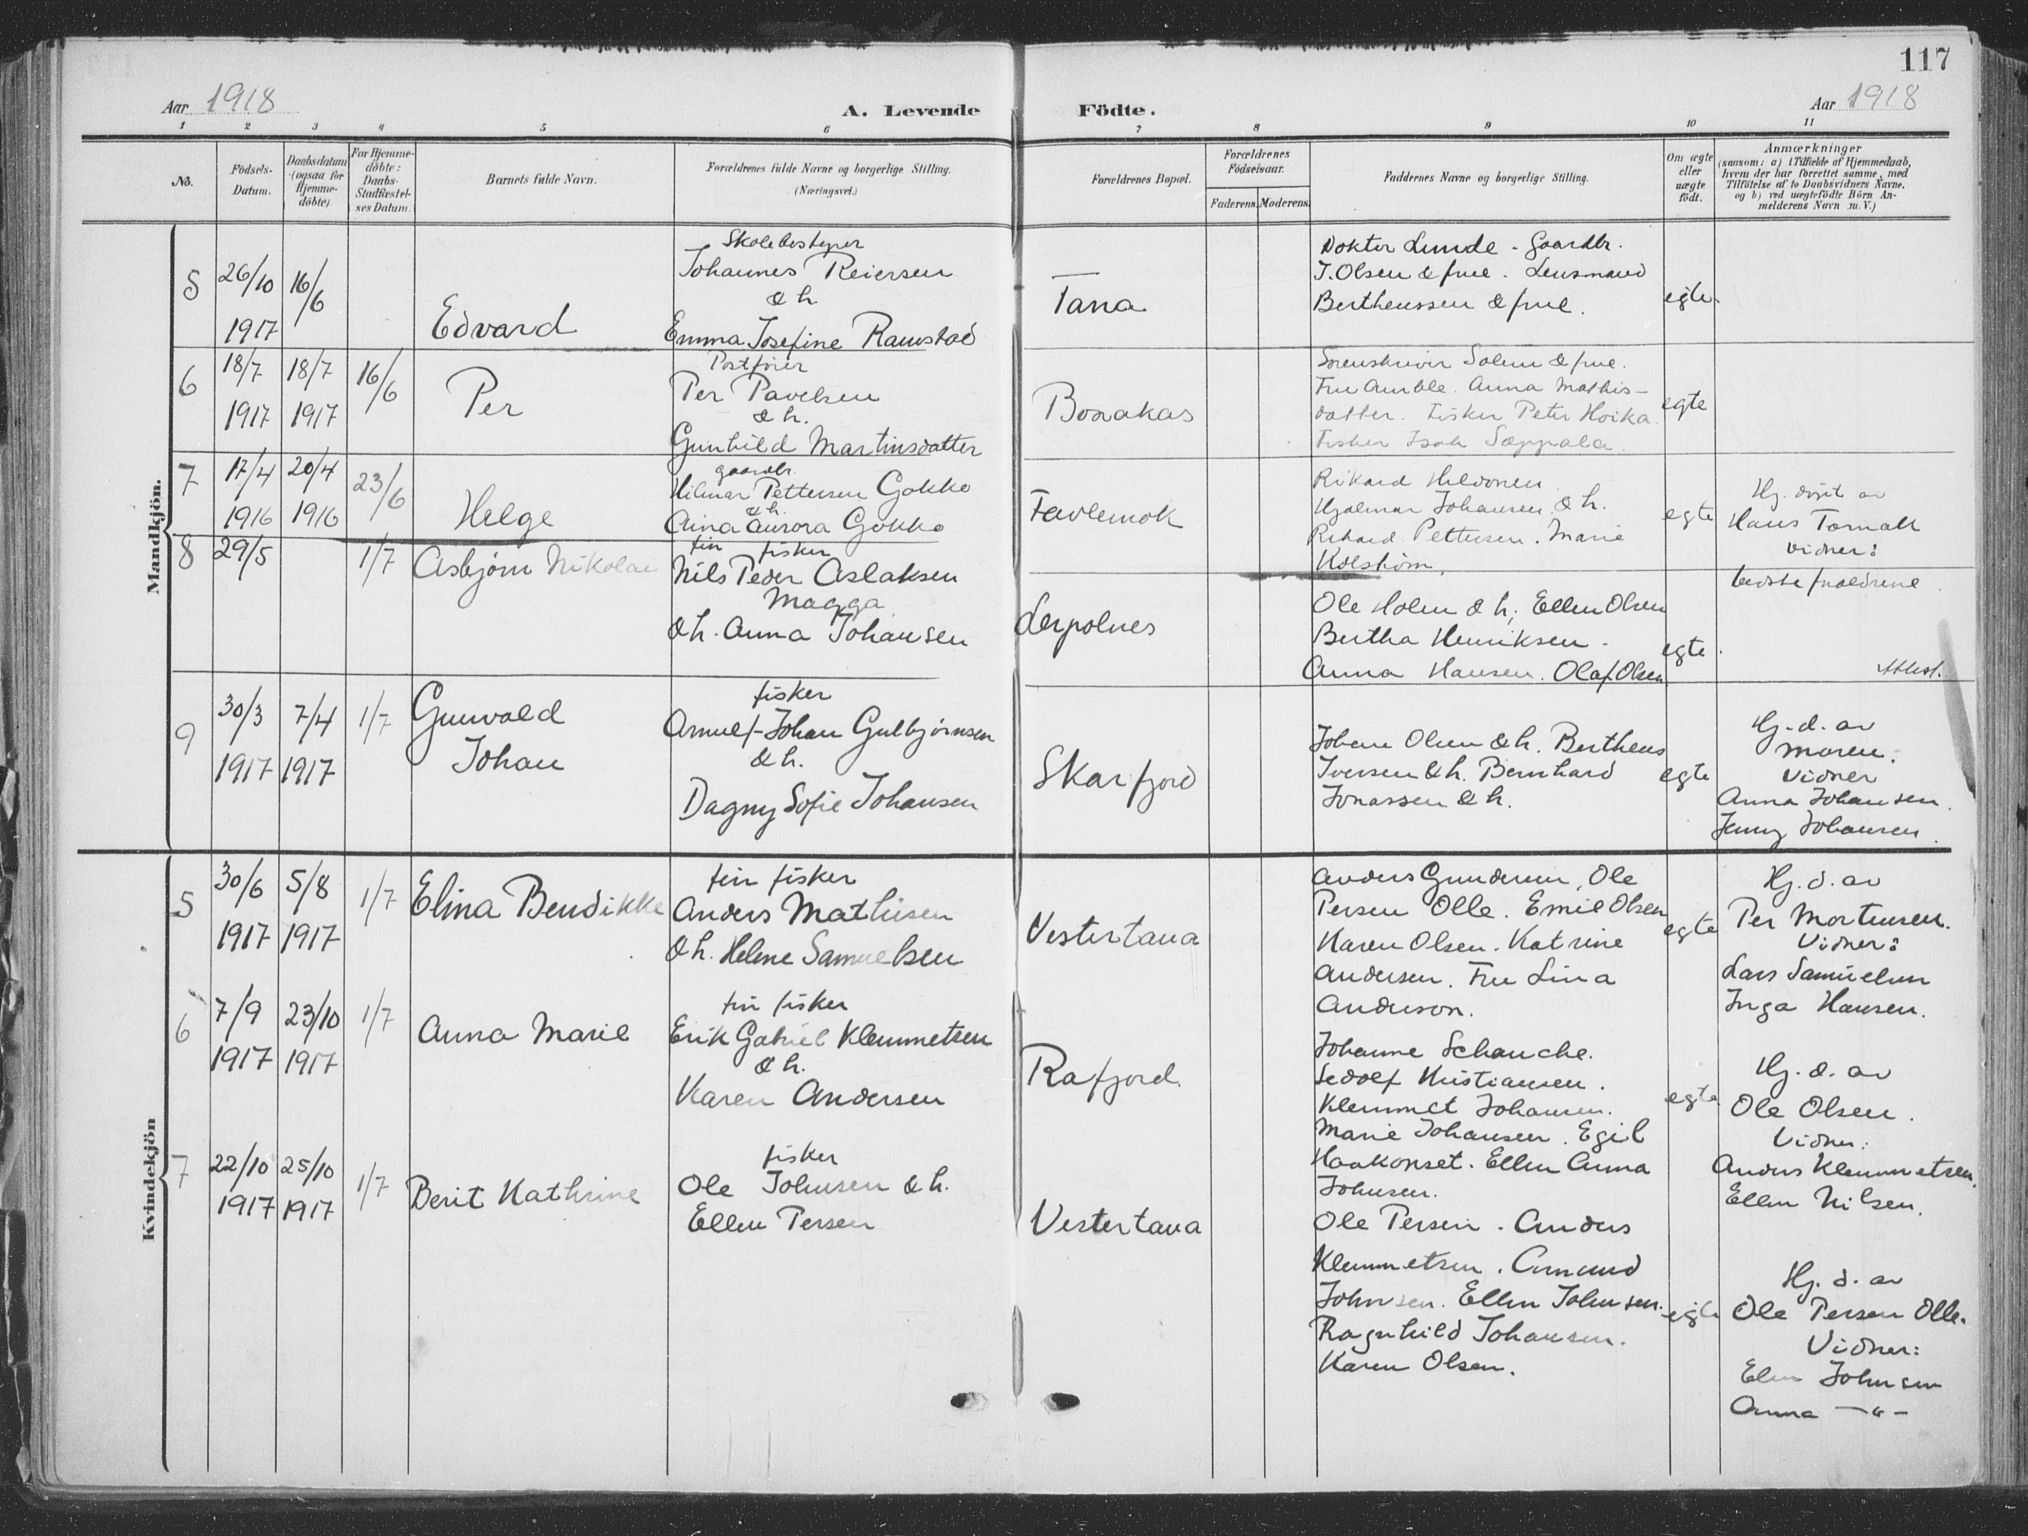 117
Aar 1918
A. Levende Födte.
Aar 1918
1 2 3 4 5 6 7 8 9 10 11
No.
Födsels-
Datum.
Daabsdatum
(ogsaa for
Hjemme-
döbte).
For Hjemme-
döbte:
Daabs-
Stadfæstel-
ses Datum.
Barnets fulde Navn.
Forældrenes fulde Navne og borgerlige Stilling.
(Næringsvei.)
Forældrenes Bopæl.
Forældrenes
Födselsaar.
Faderens. Moderens.
Faddernes Navne og borgerlige Stilling.
Om ægte
eller
uægte
födt.
Anmærkninger
(saasom: a) i Tilfælde af Hjemmedaab,
hvem der har forrettet samme, med
Tilföielse af to Daabsvidners Navne,
og b) ved uægtefödte Börn An-
melderens Navn m. V.)
Mandkjön.
5
26/10
1917
16/6
Edvard
Skolebestyrer
Johannes Reiersen
& h.
Emma Josefine Ramstad
Tana
Doktor Lunde - Gaardbr.
J. Olsen & frue. Lensmand
Bertheussen & frue.
egte.
6
18/7
1917
18/7
1917
16/6
Per
Postfører
Per Pavelsen
& h.
Gunhild Martinsdatter
Bonakas
Sorenskriver Solem & frue.
Fru Amble. Anna Mathis-
datter. Fisker Peter Hoika
Fisker Isak Sæppala
egte
7
17/4
1916
20/4
1916
23/6
Helge
gaardbr.
Hilmar Pettersen Gokke
& h.
Aina Aurora Gokke
Favlemok
Rikard
Hjalmar Johansen & h.
Rikard Pettersen. Marie
Kolstrøm.
egte
Hj. døpt av
Hans
Vidner:
bedsteforældrene
8
29/5
1/7
Asbjørn Nikolai
fin fisker
Nils Peder Aslaksen
Magga
& h. Anna Johansen
Lerpolnes
Ole Holm & h; Ellen Olsen
Bertha Henriksen.
Anna Hansen. Olaf Olsen
egte.
Attest.
9
30/3
1917
7/4
1917
1/7
Gunvald
Johan
fisker
Arnulf Johan Gulbjørnsen
& h.
Dagny Sofie Johansen
Skarfjord
Johan Olsen & h. Bertheus
Iversen & h. Bernhard
Jonassen & h.
egte
Hj. d. av
moren.
Vidner
Anna Johansen.
Jenny Johansen.
Kvindekjön
5
30/6
1917
5/8
1917
1/7
Elina Bendikke
fin fisker
Anders Mathisen
& h. Helene Samuelsen
Vestertana
Anders Gundersen, Ole
Persen Olle. Emil Olsen
Karen Olsen. Katrine
Andersen. Fru Lina
Anderson.
egte
Hj. d. av
Per Mortensen.
Vidner:
Lars Samuelsen
Inga Hansen.
6
7/9
1917
23/10
1917
1/7
Anna Marie
fin fisker
Erik Gabriel Klemmetsen
& h.
Karen Andersen
Rafjord.
Johanne Schanche.
Sedolf Kristiansen.
Klemmet Johansen.
Marie Johansen. Egil
Haakonset. Ellen Anna
Johnsen.
egte
Hj. d. av
Ole Olsen.
Vidner:
Anders Klemmetsen.
Ellen Nilsen.
7
22/10
1917
25/10
1917
1/7
Berit Kathrine
fisker
Ole Johnsen & h.
Ellen Persen
Vestertana
Ole Persen. Anders
Klemmetsen. Amund
Johnsen. Ellen Johnsen.
Ragnhild Johansen.
Karen Olsen.
egte
Hj. d. av
Ole Persen Olle.
Vidner:
Elen Johnsen
Anna —"—